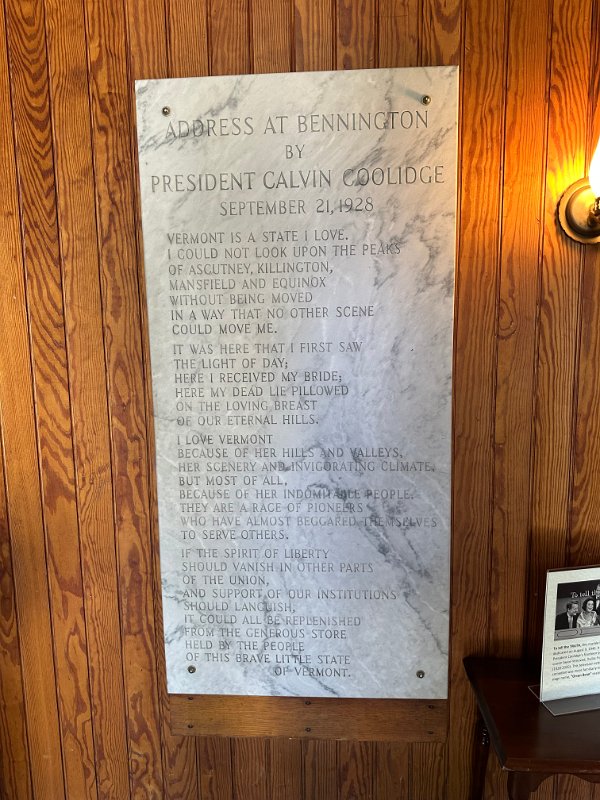 ADDRESS AT BENNINGTON
BY
PRESIDENT CALVIN COOLIDGE
SEPTEMBER 21, 1928
VERMONT IS A STATE I LOVE.
I COULD NOT LOOK UPON THE PEAKS
OF ASCUTNEY, KILLINGTON,
MANSFIELD AND EQUINOX
WITHOUT BEING MOVED
IN A WAY THAT NO OTHER SCENE
COULD MOVE ME.
IT WAS HERE THAT I FIRST SAW
THE LIGHT OF DAY;
HERE I RECEIVED MY BRIDE;
HERE MY DEAD LIE PILLOWED
ON THE LOVING BREAST
OF OUR ETERNAL HILLS.
I LOVE VERMONT
BECAUSE OF HER HILLS AND VALLEYS,
HER SCENERY AND INVIGORATING CLIMATE,
BUT MOST OF ALL,
BECAUSE OF HER INDOMITABLE PEOPLE.
THEY ARE A RACE OF PIONEERS
WHO HAVE ALMOST BEGGARED THEMSELVES
TO SERVE OTHERS.
IF THE SPIRIT OF LIBERTY
SHOULD VANISH IN OTHER PARTS
OF THE UNION,
AND SUPPORT OF OUR INSTITUTIONS
SHOULD LANGUISH,
IT COULD ALL BE REPLENISHED
FROM THE GENEROUS STORE
HELD BY THE PEOPLE
OF THIS BRAVE LITTLE STATE
OF VERMONT.
To tell th